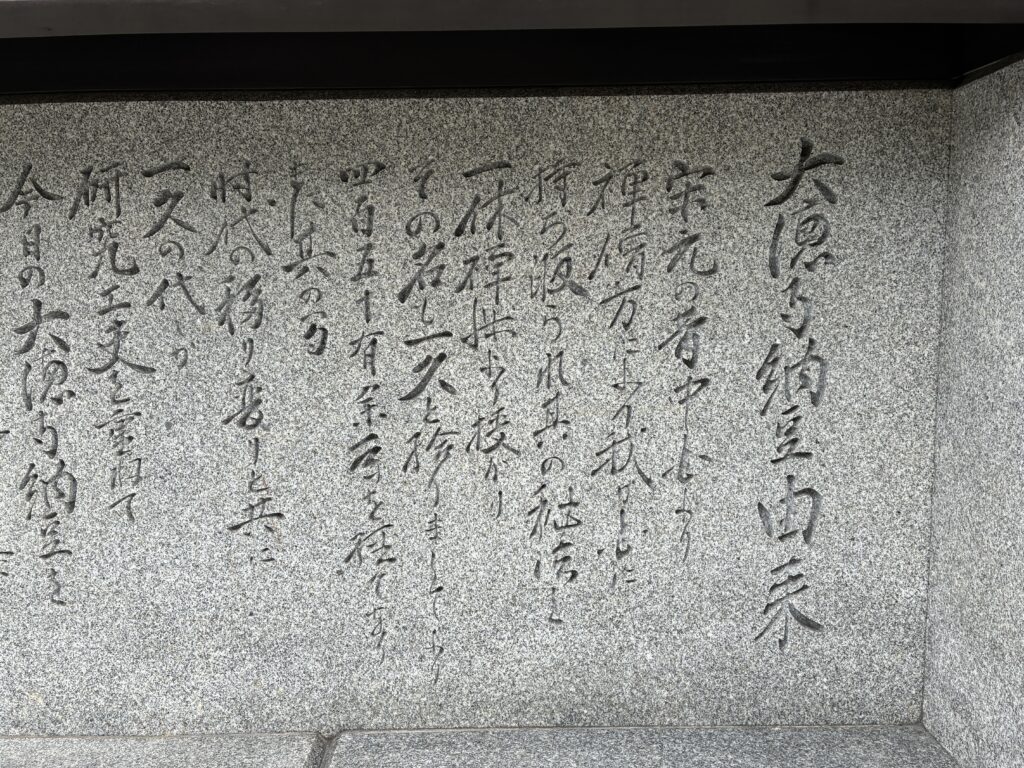 大徳寺納豆由来
宋元の昔中土より
禅僧方によつて我が国に
持ち渡られ其の秘法を
一休禅師より授かり
その名も一久と珍りましてより
四百五十有余年を経てをり
ます其の間
時代の移り変りと共に
一久の代々が
研究工夫を重ねて
今日の大徳寺納豆を